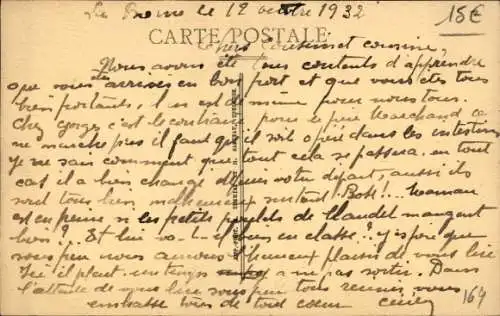 le 12 octobre 1932
15€
CARTE POSTALE
Chers cousins et cousine,
Nous avons été tous contents d'apprendre
que vous êtes arrivés en bon port et que vous êtes tous
bien portants, il en est de même pour nous tous.
Chez c'est le contraire pour le père Marchand ça
ne marche pas il faut qu'il soit opéré dans les intestins
je ne sais comment que tout cela se passera, en tout
cas il a bien changé depuis votre départ, aussi ils
sont tous bien malheureux surtout Maman
est en peine si les petits de Claudet mangent
bien? Et lui va-t-il bien en classe? j'espère que
sous peu nous aurons plaisir de vous lire
Ici il pleut un temps a ne pas sortir. Dans
l'attente de vous lire sous peu tous vous
embrasse tous de tout cœur
164